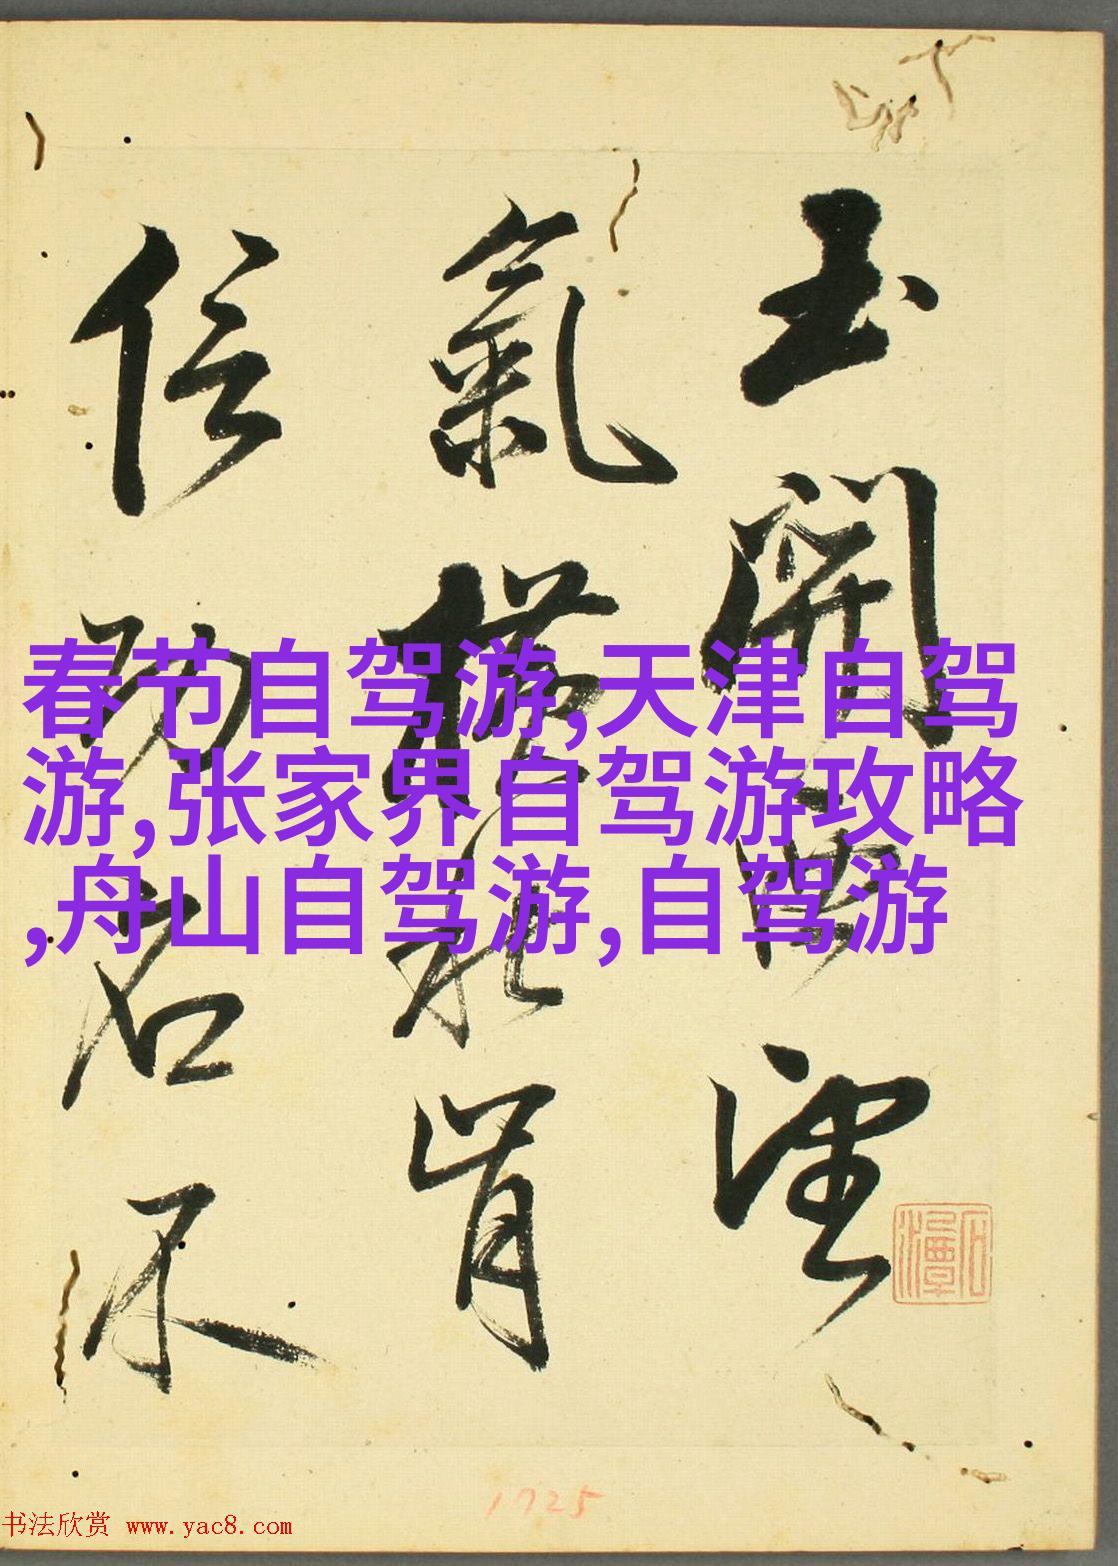 玉關西望
氣橫秋肯
信功名不
春节自驾游,天津自驾
游,张家界自驾游攻略
,舟山自驾游,自驾游
石潭
1725
书法欣赏 www.yac8.com